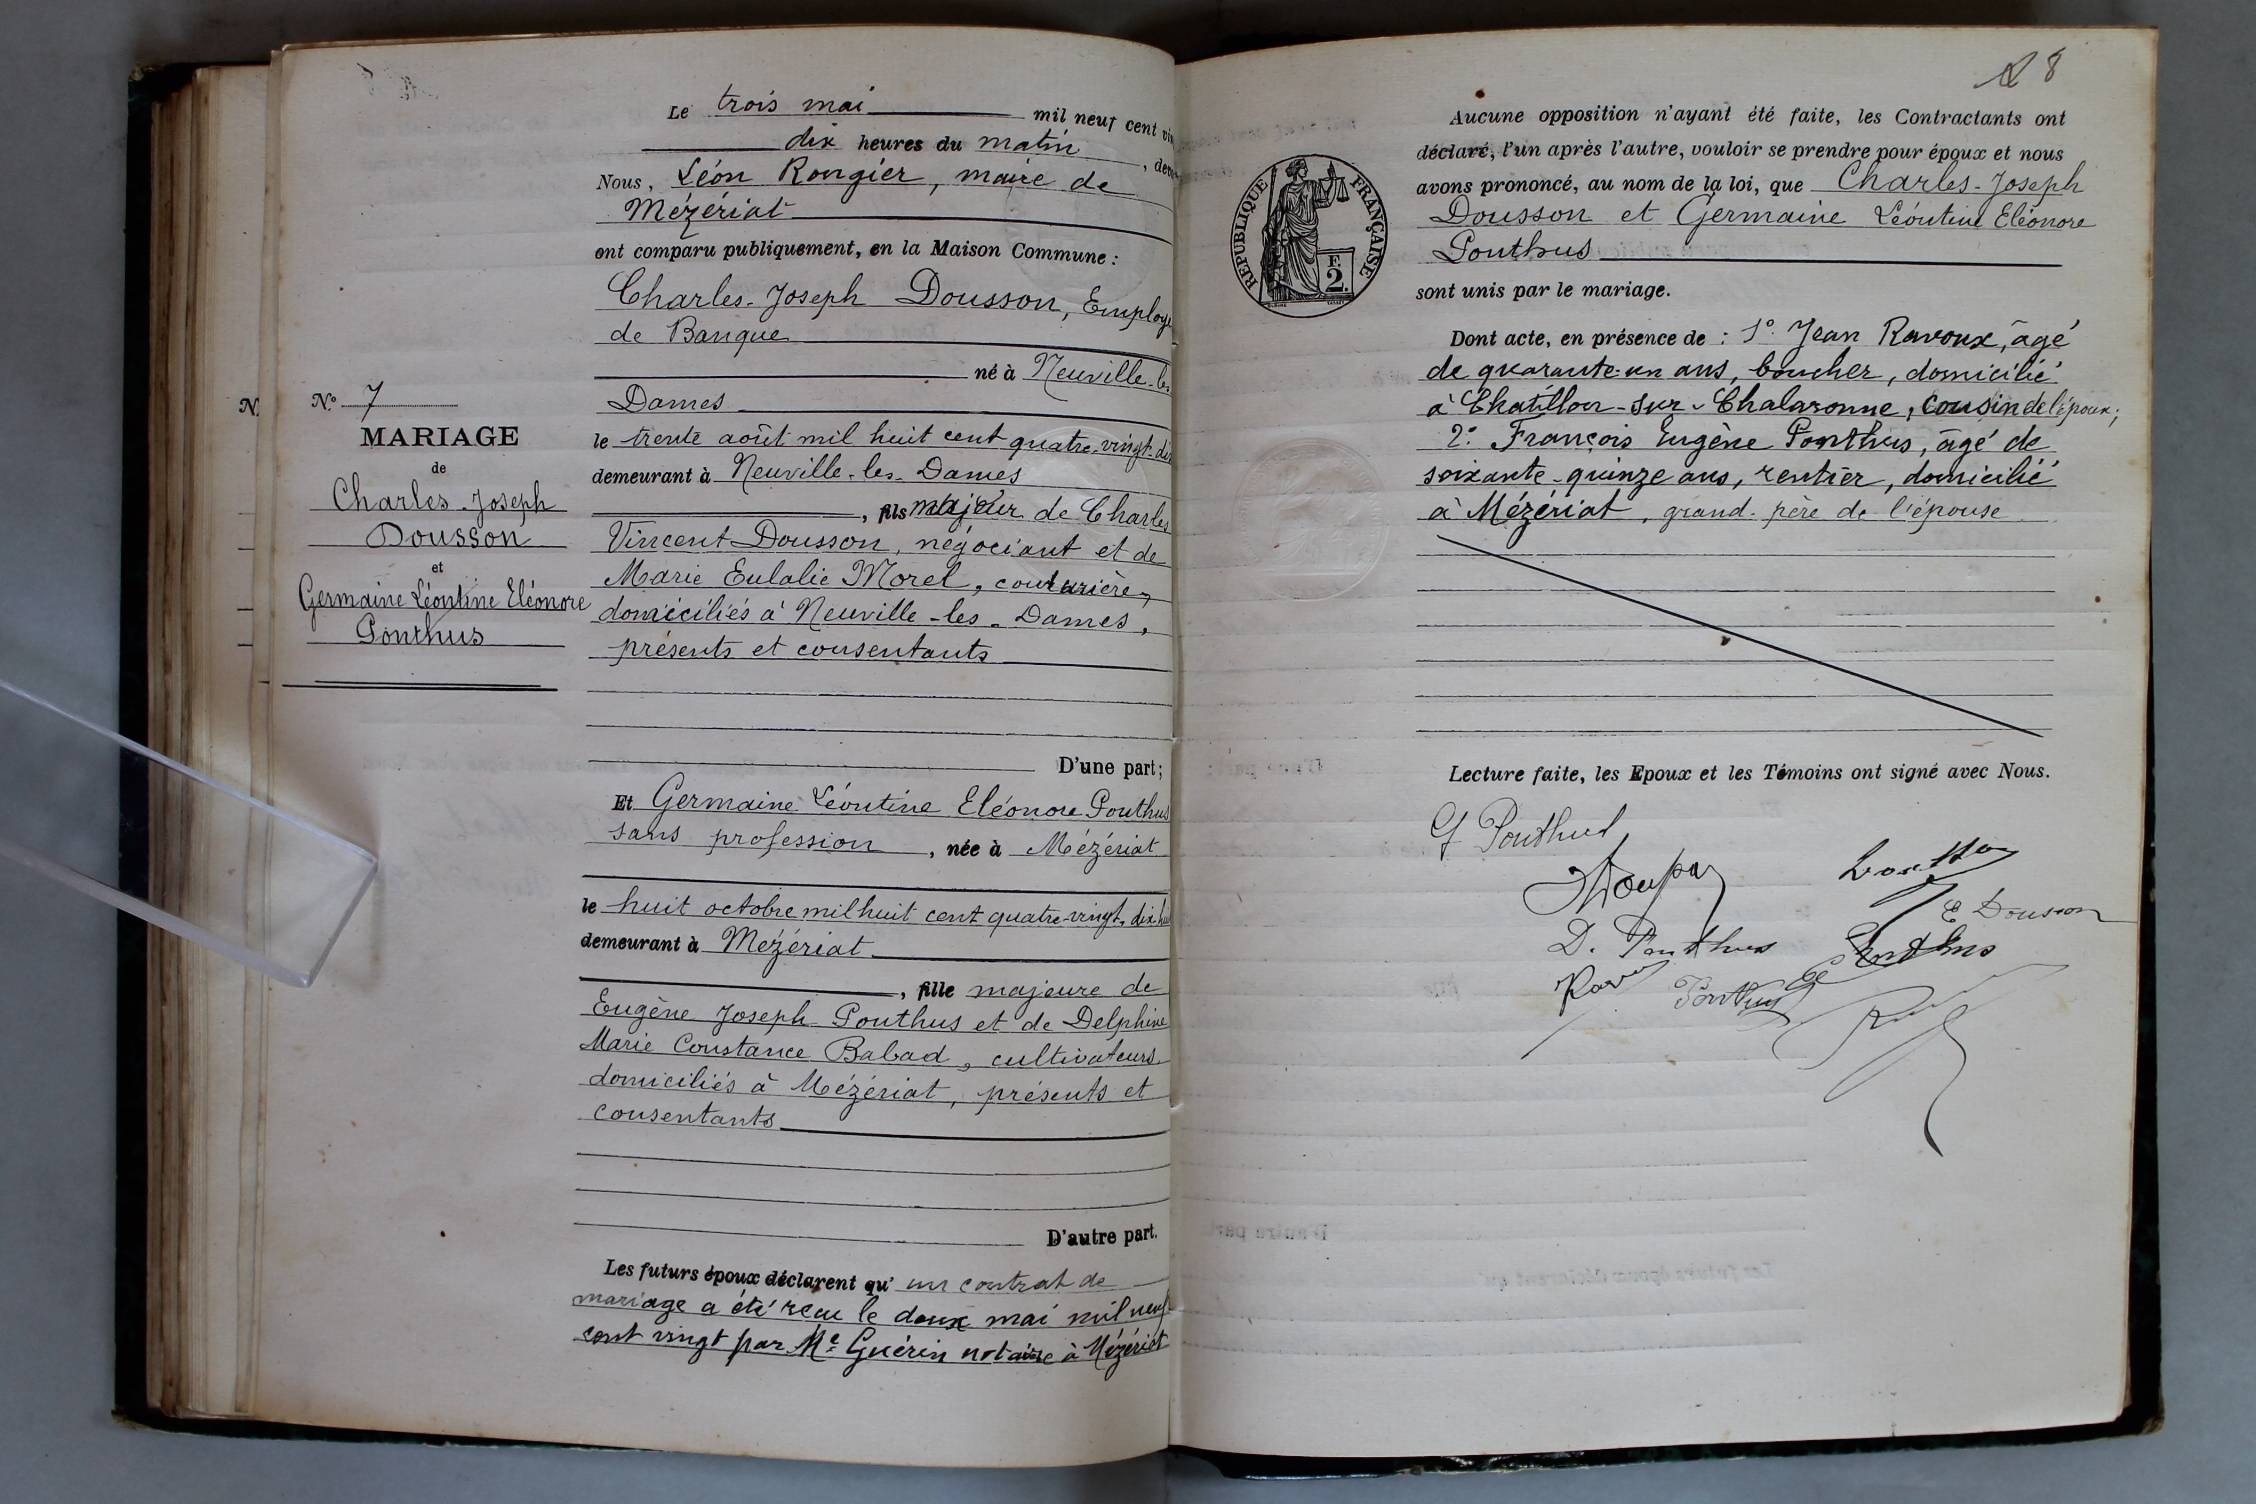 N.
N.º 7
MARIAGE
de
Charles-Joseph
Dousson
et
Germaine Léontine Eléonore
Ponthus
Le trois mai mil neuf cent
dix heures du matin
Nous, Léon Rongier, maire de
Mézériat
ont comparu publiquement, en la Maison Commune :
Charles-Joseph Dousson, Employé
de Banque
né à Neuville-les
Dames
le trente août mil huit cent quatre-vingt-
demeurant à Neuville-les-Dames
, fils majeur de Charles
Vincent Dousson, négociant et de
Marie Eulalie Morel, couturière,
domiciliés à Neuville-les-Dames,
présents et consentants
D'une part;
Et Germaine Léontine Eléonore Ponthus
sans profession, née à Mézériat
le huit octobre mil huit cent quatre-vingt-dix-
demeurant à Mézériat
, fille majeure de
Eugène Joseph Ponthus et de Delphine
Marie Constance Babad, cultivateurs
domiciliés à Mézériat, présents et
consentants
D'autre part.
Les futurs époux déclarent qu' un contrat de
mariage a été reçu le deux mai mil neuf
cent vingt par Me Guérin notaire à Mézériat
8
RÉPUBLIQUE FRANÇAISE
F.
2.
Aucune opposition n'ayant été faite, les Contractants ont
déclaré, l'un après l'autre, vouloir se prendre pour époux et nous
avons prononcé, au nom de la loi, que Charles-Joseph
Dousson et Germaine Léontine Eléonore
Ponthus
sont unis par le mariage.
Dont acte, en présence de : 1º Jean Ravoux, âgé
de quarante-un ans, boucher, domicilié
à Chatillon-sur-Chalaronne, cousin de l'époux;
2º François Eugène Ponthus, âgé de
soixante-quinze ans, rentier, domicilié
à Mézériat, grand-père de l'épouse
Lecture faite, les Epoux et les Témoins ont signé avec Nous.
G Ponthus
E Dousson
D. Ponthus
Ponthus
Ponthus